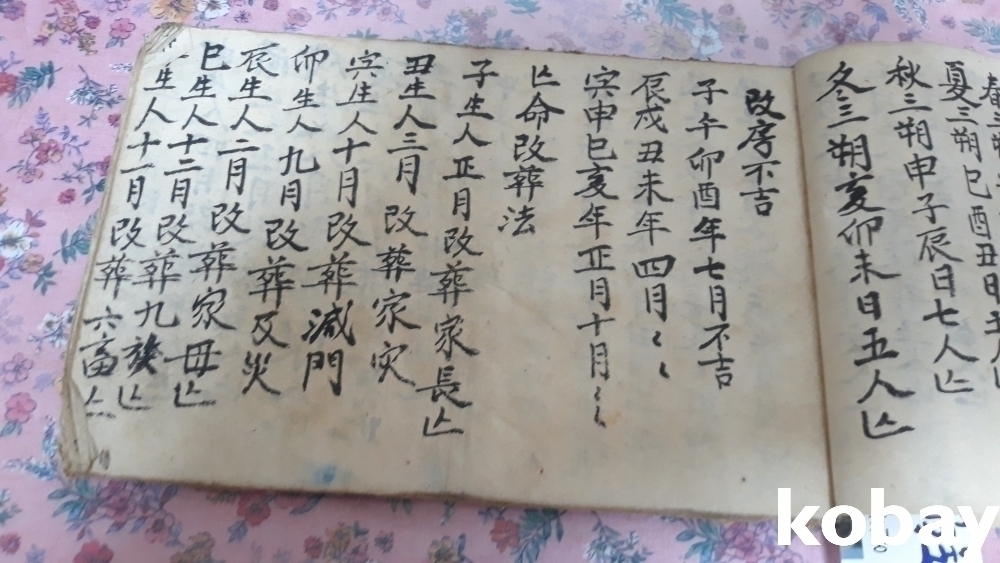 夏三朔巳酉丑日
秋三朔申子辰日七人亡
冬三朔亥卯未日五人亡
改序不吉
子午卯酉年七月不吉
辰戌丑未年四月〻
寅申巳亥年正月十月〻
亡命改葬法
子生人正月改葬家長亡
丑生人三月改葬家灾
寅生人十月改葬滅門
卯生人九月改葬及災
辰生人二月改葬家母亡
巳生人十二月改葬九族亡
生人十一月改葬六畜亡
kobay